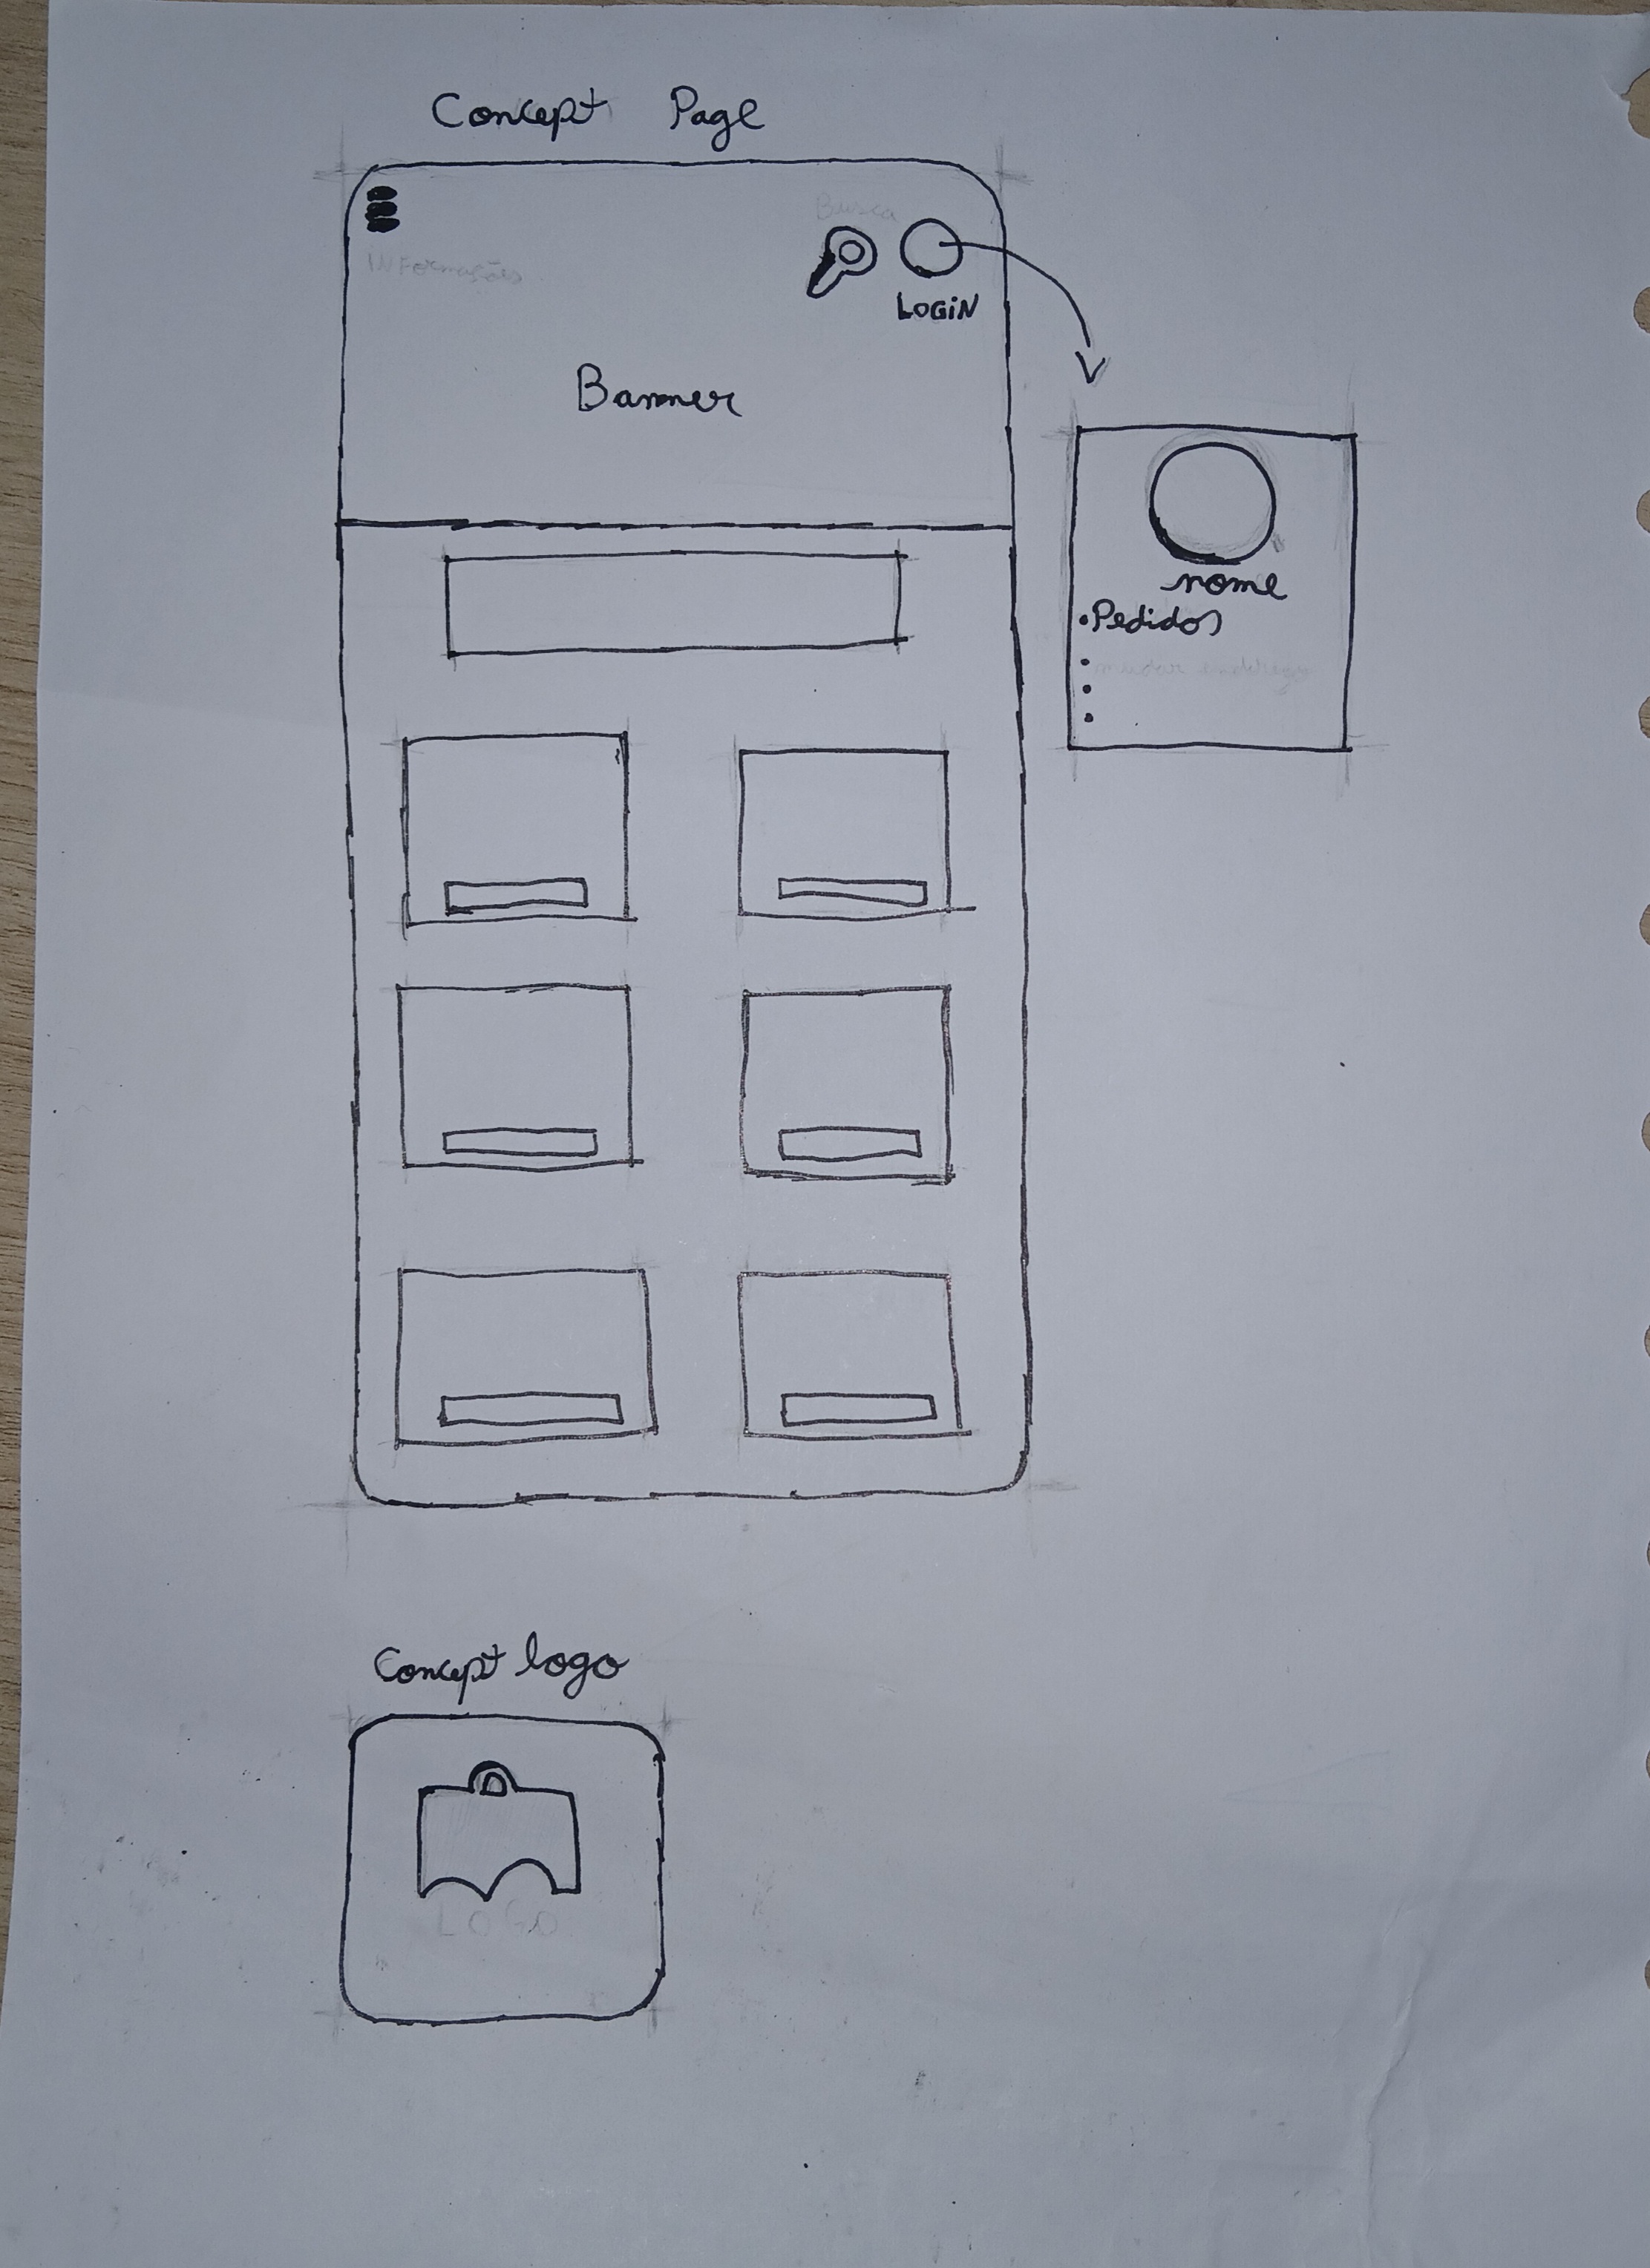 Concept Page
Busca
INFormações
LOGIN
Banner
nome
•Pedidos
•
•
•
Concept logo
LOGO